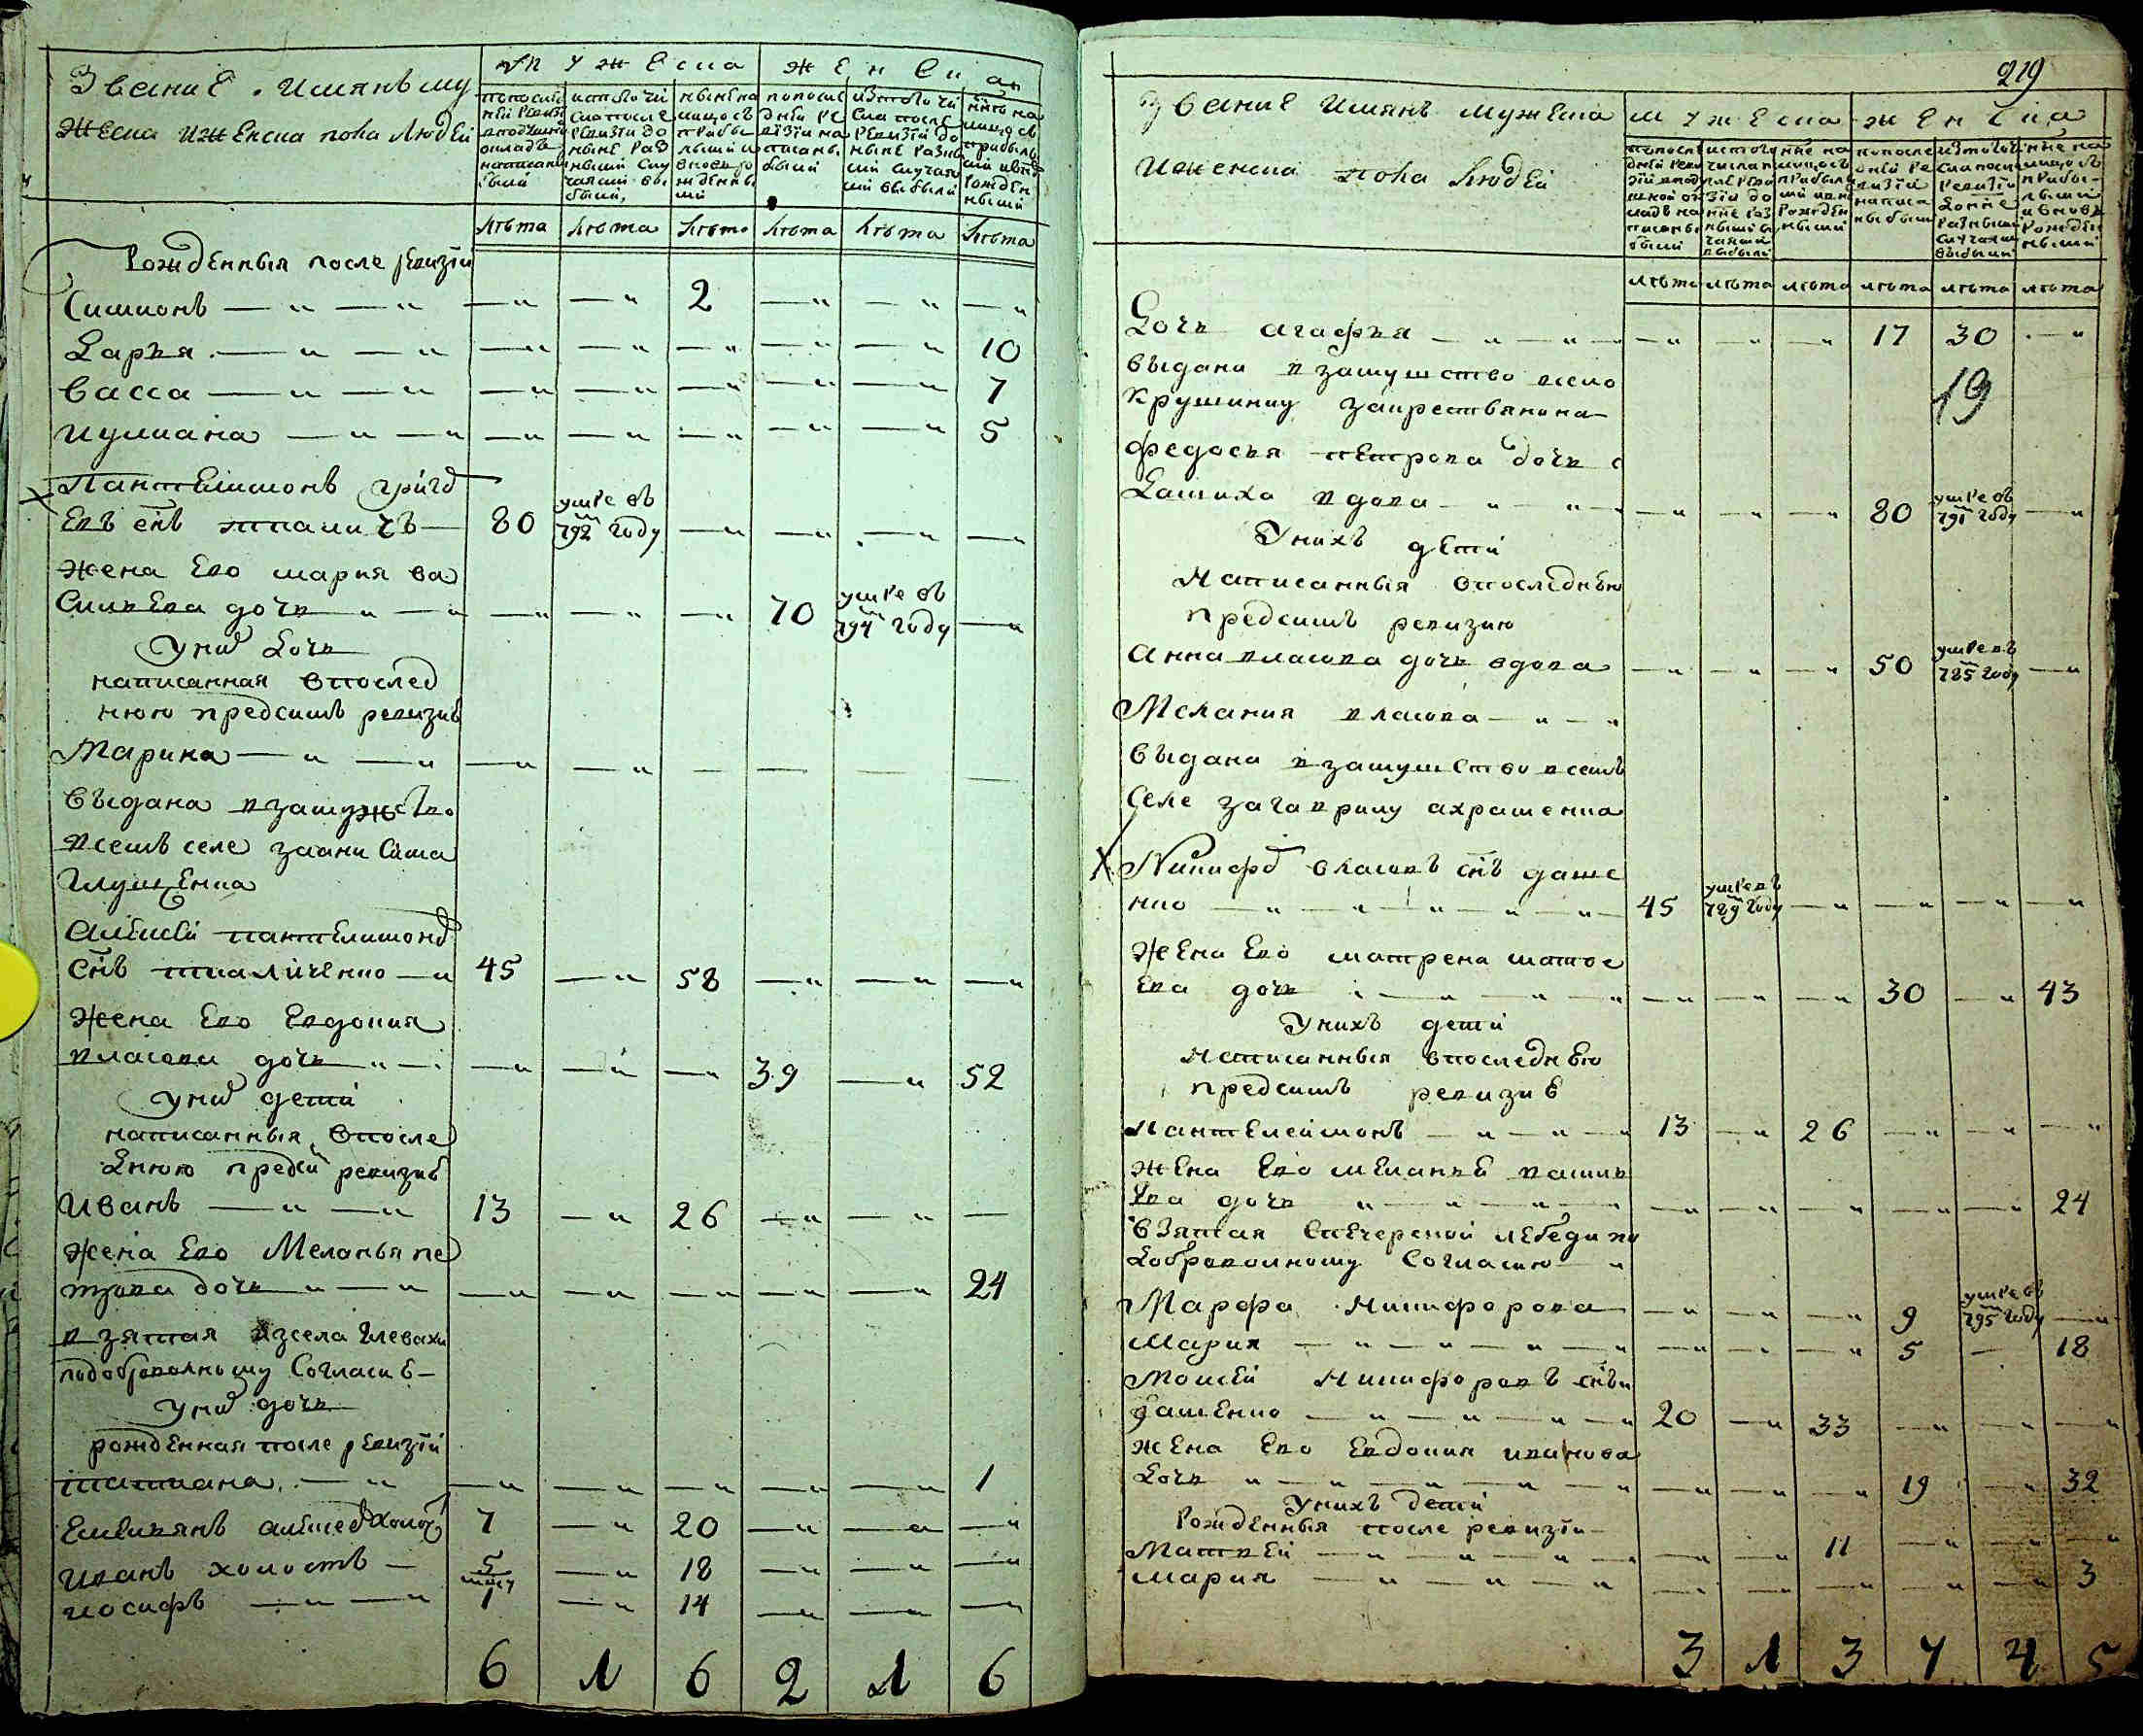 Званиє имянъ му
жеска иженска пола людей
мужеска
женска
попослѣ
дней ревизіи
вподушной
окладъ
написаны
были
истого чи
сла после
ревизіи до
ныне раз
ными слу
чаями вы
были
ныне на
лицо съ
прибы
лыми и
вновь ро
жденны
ми
попосле
дней ре
визіи на
писаны
были
изтого чи
сла после
ревизіи до
ныне разны
ми случая
ми выбыли
ннѣ на
лицо съ
прибыль
ми ивно
рожден
ными
лѣта лѣта лѣта лѣта лѣта лѣта
Рожденныя после ревизіи
Симионъ — " — " — " — " 2 — " — " — "
Дарья — " — " — " — " — " — " — " 10
васса — " — " — " — " — " — " — " 7
иулиана — " — " — " — " — " — " — " 5
Пантелимонъ григо
евъ снъ ткаличъ — 80 умре въ 792 году — " — " — " — "
жена Его мария ва
силиева дочь — " — " — " — " 70 умре въ 794 году — "
Униᵡ Дочь
написанная впослед
нюю предсимъ ревизию
Марина — " — " — " — " — — — —
выдана взамужство
всемъ селе заани сима
глущенка
Алексѣй пантелимоноᵛ
снъ ткаличенко — " 45 — " 58 — " — " — "
Жена Его Евдокия
власова дочь " — " — " — " — " 39 — " 52
униᵡ дети
написанныя впосле
днюю предсимъ ревизиѣ
Иванъ — " — " 13 — " 26 — " — " —
жена Его Меланья пе
трова дочь " — " — " — " — " — " — " 24
взятая изсела глевахи
подобровольному Согласиѣ —
униᵡ дочь
рожденная после ревизіи
татиана — " — " — " — " — " — " 1
Емилиянъ алексеᵛ холоᶜ 7 — " 20 — " — " — "
иванъ холостъ — 5 — " 18 — " — " — "
иосифъ — " — " 1 — " 14 — " — " — "
6 1 6 2 1 6
219
Званиє имянъ мужеска
иженска пола людей
мужеска
женска
попосле
дней реви
зіи впод
ушной ок
ладъ на
писаны
были
истого
числа п
сле реви
зіи до
нне раз
ными слу
чаями
выбыли
нне на
лицо съ
прибылы
ми ивно
рожден
ными
попосле
дней ре
визіи
написа
ны были
изтого чи
сла после
ревизіи
донне
разными
случаями
выбыли
нне на
лицо съ
прибы-
лыми
и вновь
рожден
ными
лѣта лѣта лѣта лѣта лѣта лѣта
Дочь агафья — " — " — — " — " — " 17 30 — "
19
выдана взамушство всело
Крушинку закрествянина
федосья петрова дочь
Дашиха вдова — " — " — — " — " — " 80 умре въ 791 году — "
Унихъ дети
Написанныя впоследнюю
предсимъ ревизию
анна власова дочь вдова — " — " — " 50 умре въ 785 году — "
Мелания власова — " — "
выдана взамушство всемъ
селе загаврилу ахрашенка
Никифоᵖ власовъ снъ даше
нко — " — " — " — " — " — 45 умре въ 789 году — " — " — " — "
Жена Его матрена матве
ева дочь — " — " — " — " — " — " 30 — " 43
Унихъ дети
Написанныя впоследнѣю
предсимъ ревизиѣ
Пантелеймонъ — " — " — " 13 — " 26 — " — " — "
жена Его меланьѣ васил
ева дочь " — " — " — " — " — " — " — " — " 24
взятая спечерской лебеди по
добровольному Согласию — "
Марфа Никифорова — " — " — " 9 умре въ 795 году — "
Мария — " — " — " — " — " — " — " 5 — 18
Моисей Никифоровъ снъ
дашенко — " — " — " 20 — " 33 — " — " — "
жена Его Евдокия иванова
Дочь " — " — " — " — " — " — " 19 — " 32
Унихъ дети
Рожденныя после ревизіи —
Матвей — " — " — " — — " — " 11 — " — " — "
Мария — " — " — " — " — " — " — " — " 3
3 1 3 7 4 5